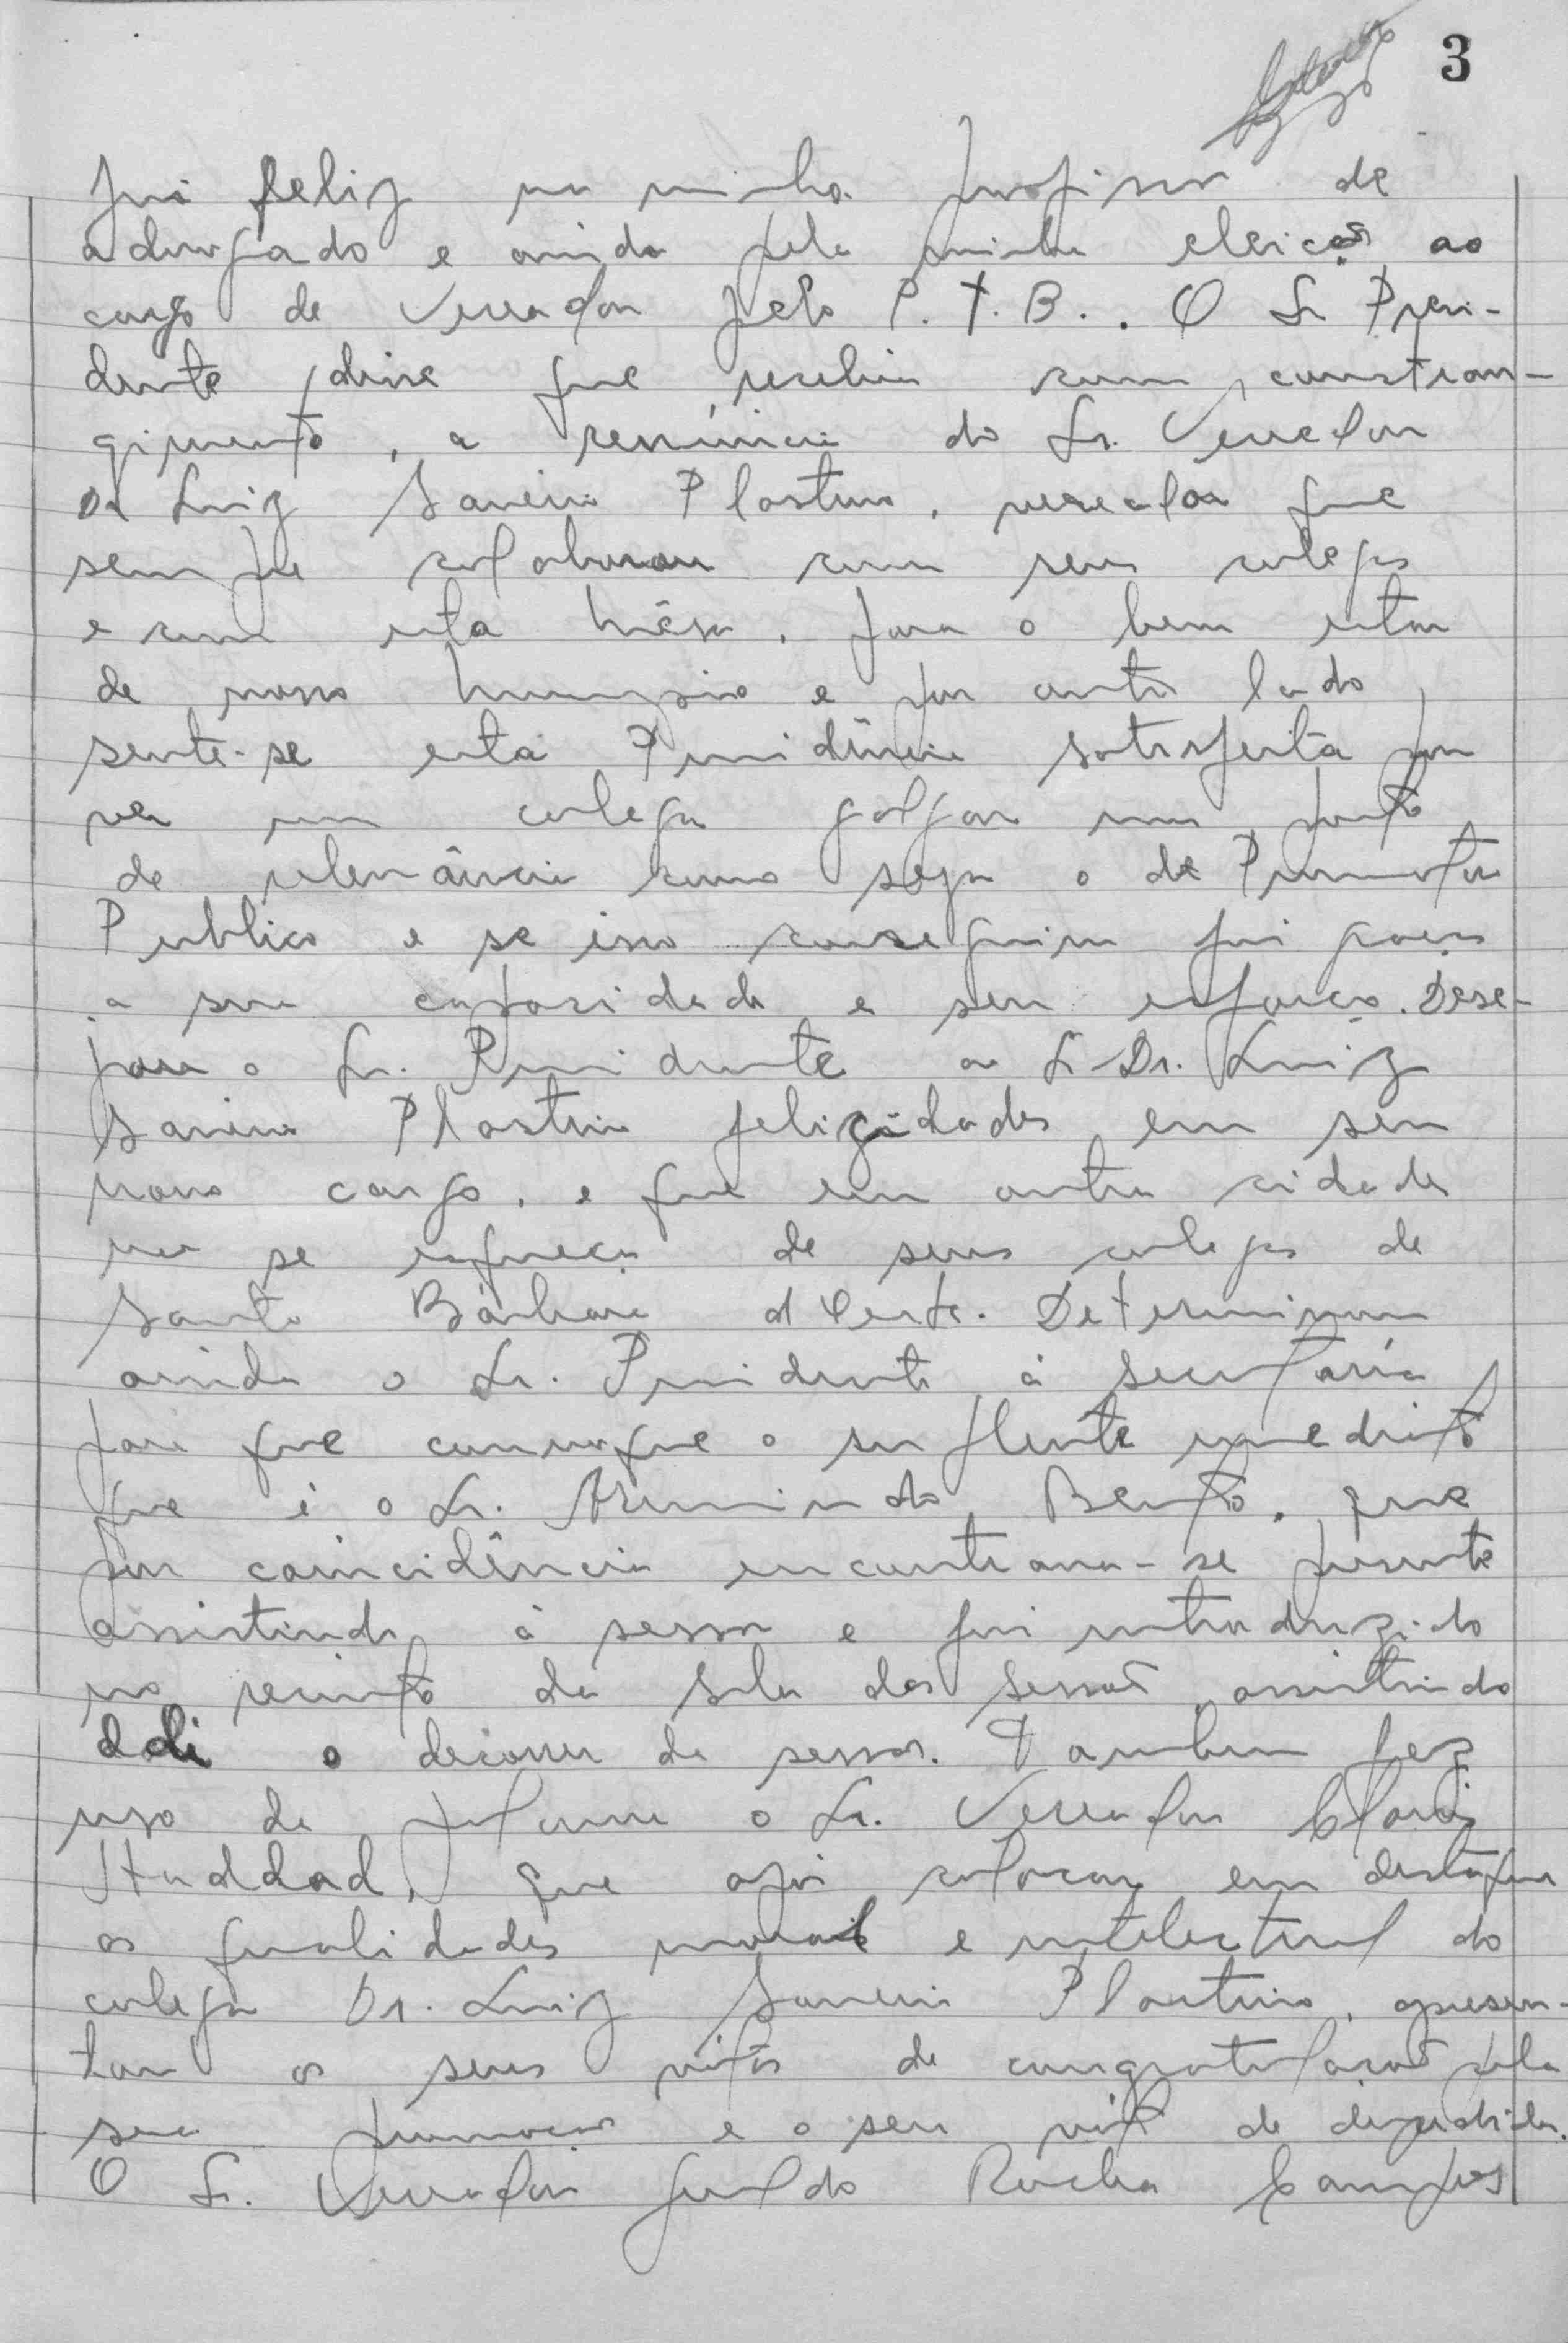 3
fui feliz na minha profissão de
advogado e ainda pela minha eleição ao
cargo de Vereador pelo P.T.B.. O Sr Presi-
dente disse que recebia com constran-
gimento, a renúncia do Sr. Vereador
Dr Luiz Saverio Plastino, vereador que
sempre colaborou com seus colegas
e com esta Mêsa, para o bem estar
de nosso Município e por outro lado
sente-se esta Presidência satisfeita por
ver um colega galgar um posto
de relevância como seja o de Promotor
Publico e se isso conseguiu foi graças
a sua capacidade e seu esforço. Dese-
jou o Sr. Presidente ao Sr Dr. Luiz
Saverio Plastino felicidades em seu
novo cargo, e que em outra cidade
não se esqueça de seus colegas de
Santa Bárbara d'Oeste. Determinou
ainda o Sr. Presidente à secretaria
para que convoque o suplente imediato
que é o Sr. Armindo Bento, que
por coincidência encontrava-se presente
assistindo à sessão e foi introduzido
no recinto da sala das sessões assistindo
dali o decorrer da sessão. Tambem fez
uso da palavra o Sr. Vereador
Haddad, que após colocar em destaque
as qualidades moral e intelectual do
colega Dr. Luiz Saverio Plastino, apresen-
tou os seus votos de congratulações pela
sua promoção e o seu voto de despedida.
O Sr. Vereador Geraldo Rocha Campos